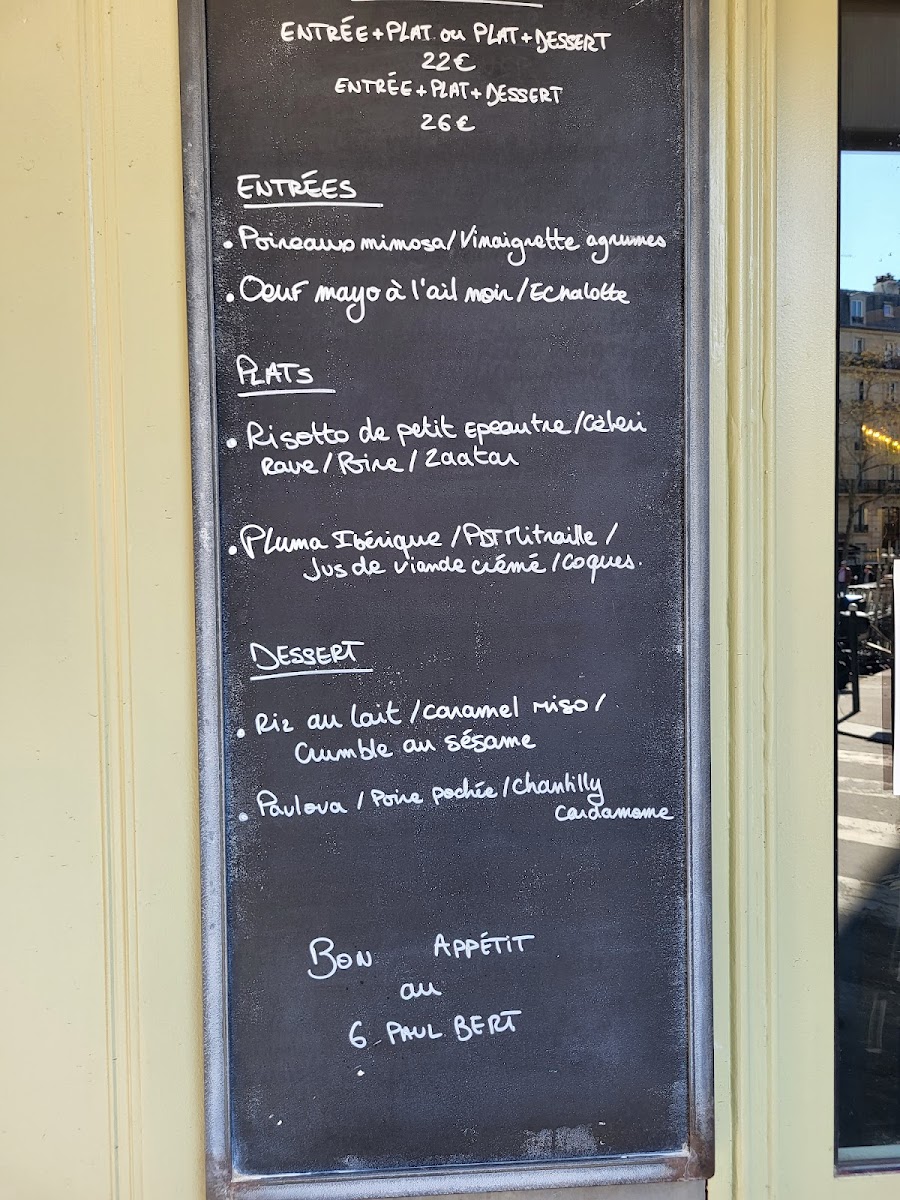 ENTRÉE+PLAT ou PLAT+DESSERT
22€
ENTRÉE+PLAT+DESSERT
26€
ENTRÉES
• Poireaux mimosa/Vinaigrette agrumes
• Oeuf mayo à l'ail noir/Echalotte
PLATS
• Risotto de petit Epeautre/Céleri
rave/Poire/Zaatar
• Pluma Ibérique/PDT Mitraille/
Jus de viande crémé/coques.
DESSERT
• Riz au lait/caramel miso/
Crumble au sésame
• Pavlova/Poire pochée/Chantilly
Cardamome
BON APPÉTIT
au
6 PAUL BERT